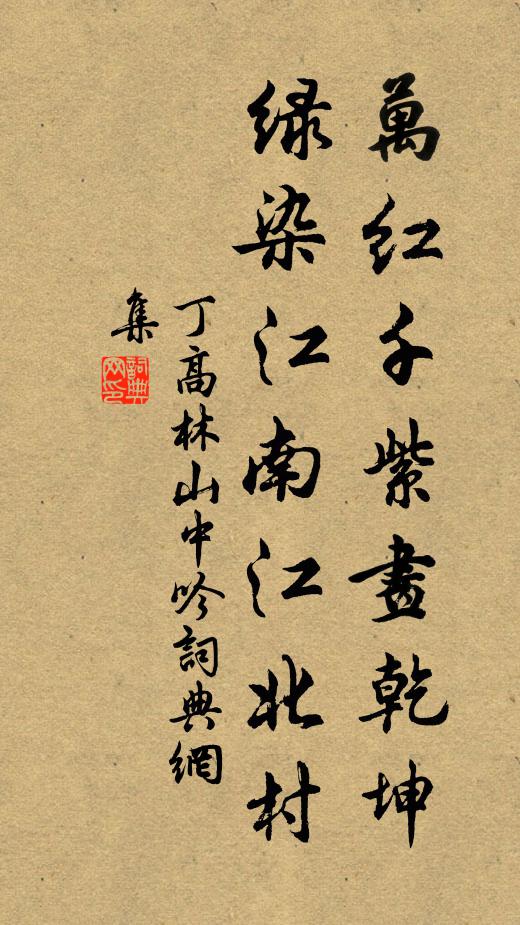 萬紅千紫畫乾坤
绿染江南江北村
丁高林山中吟詞典網
集
詞典网印